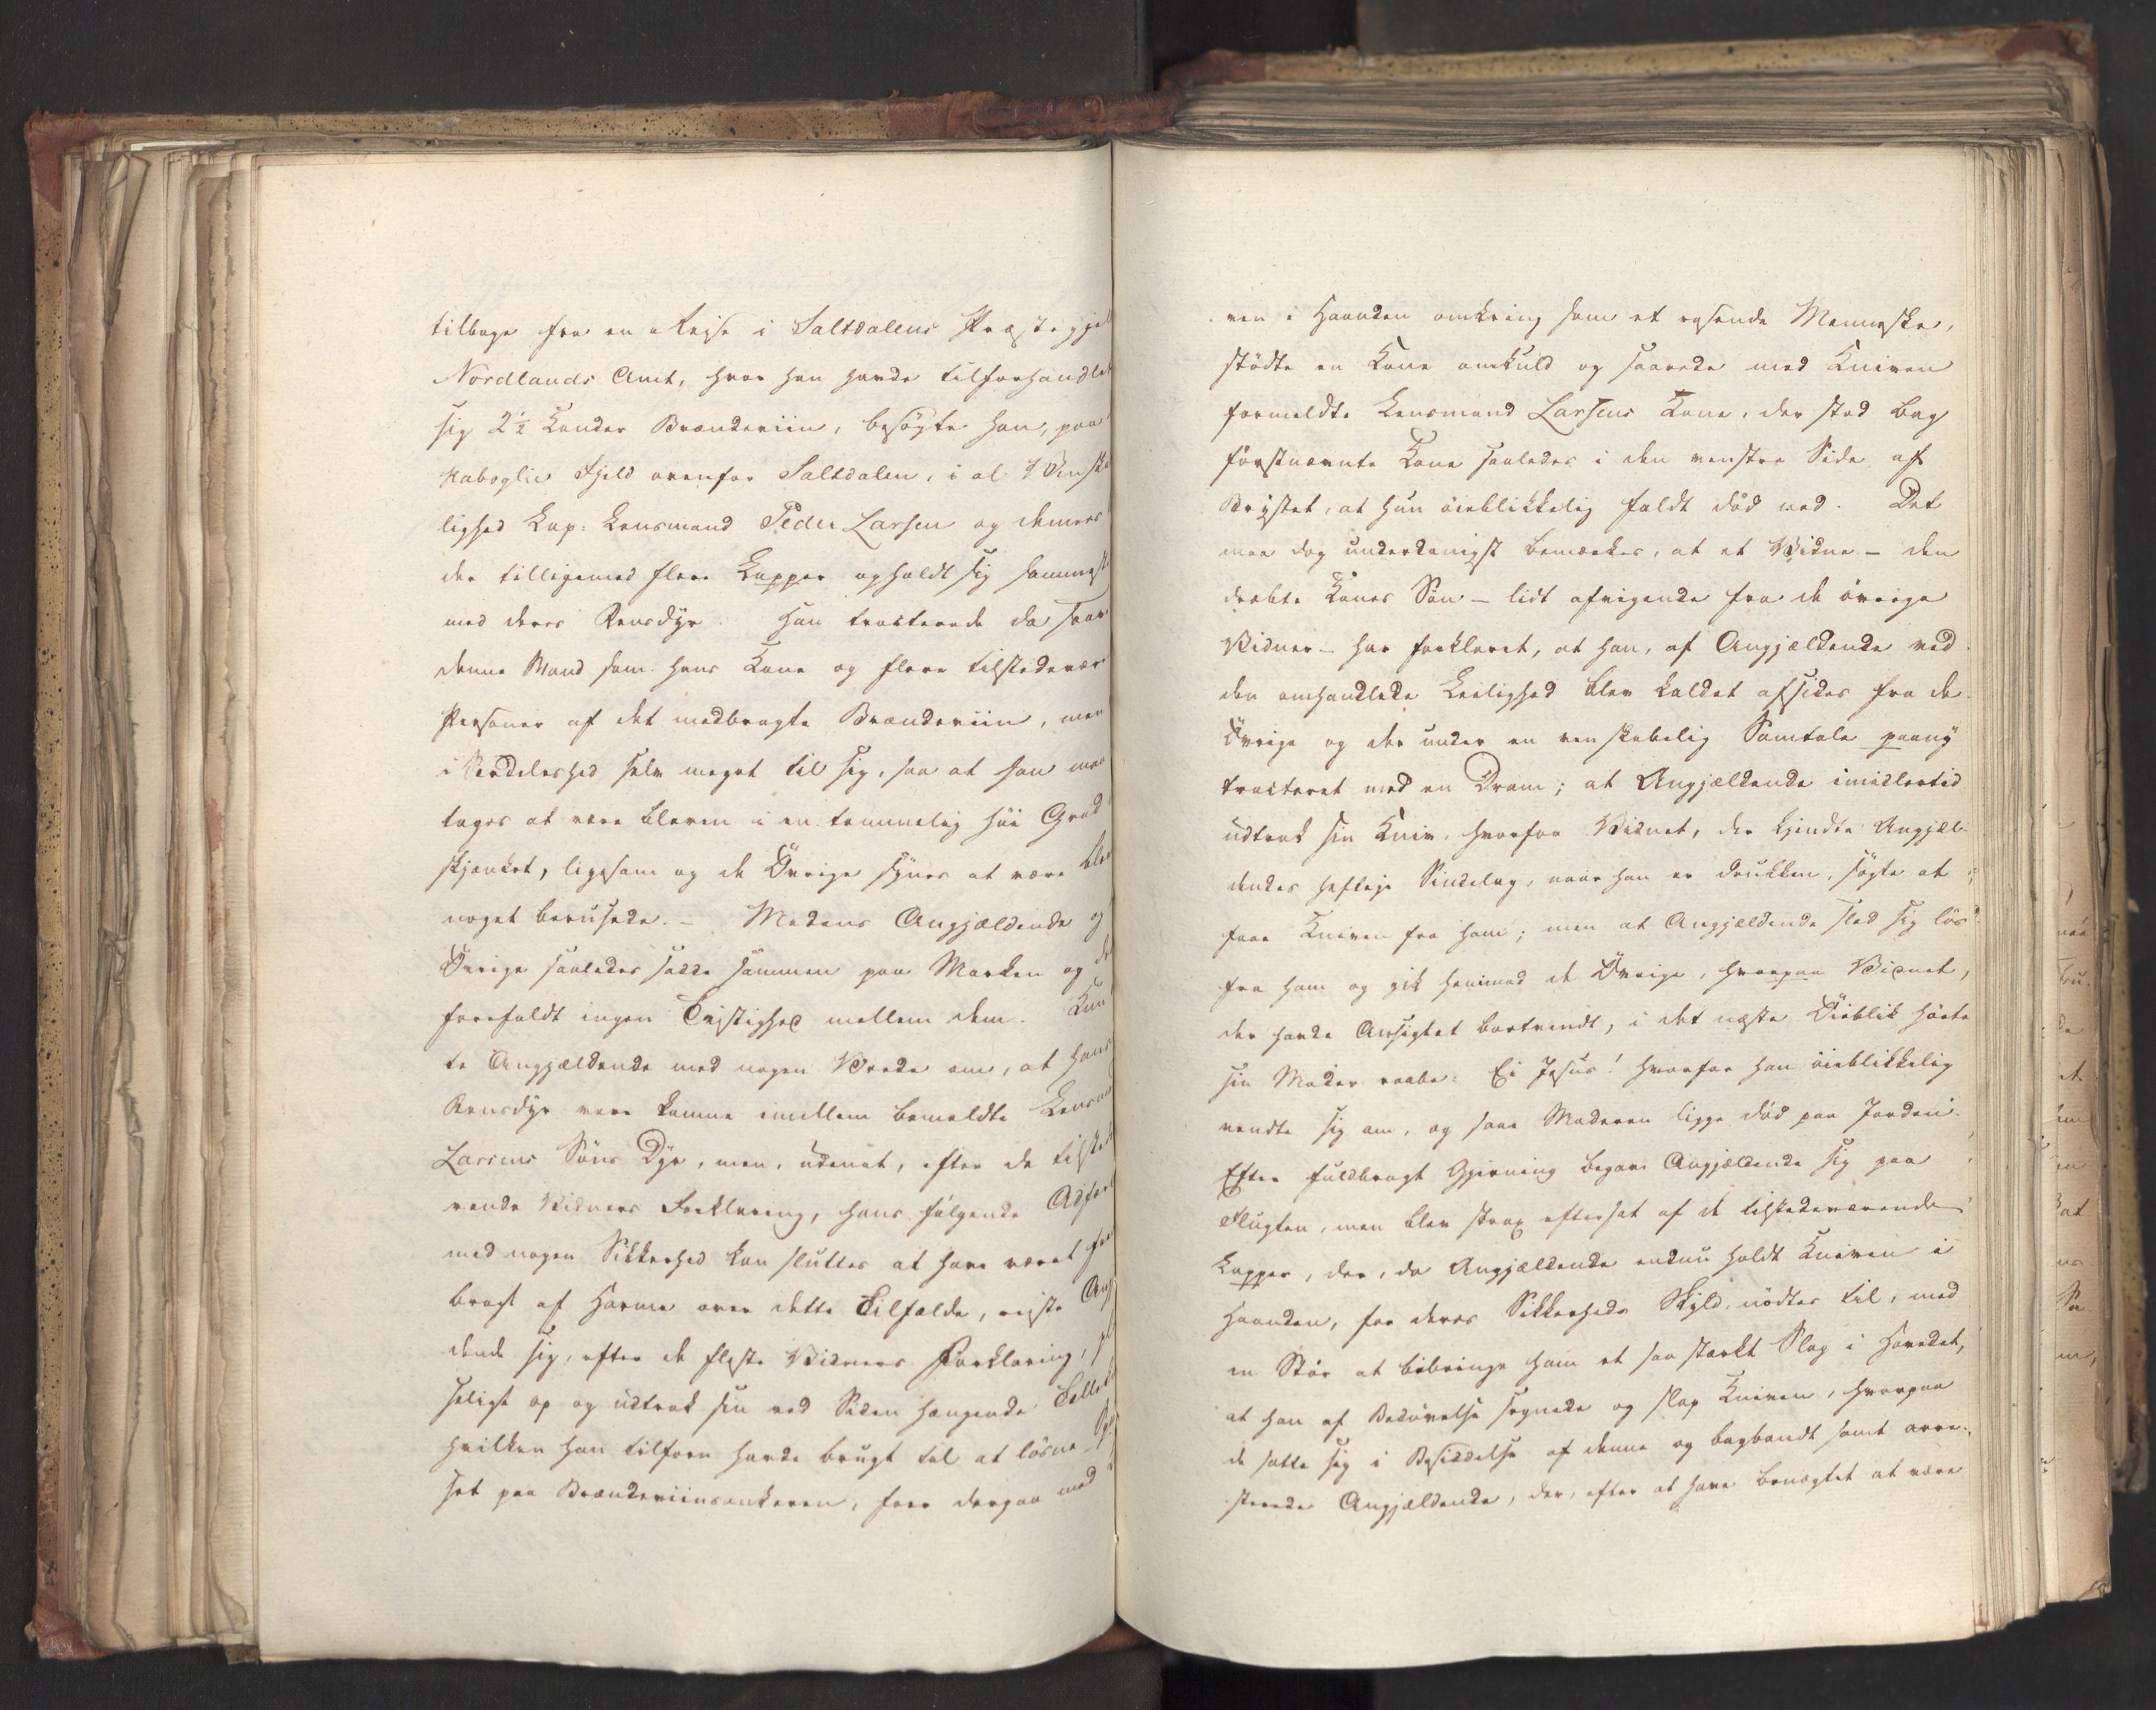 tilbage fra en Reise i Saltdalens Præstegjel
Nordlands Amt, hvor han havde tilforhandlet
sig 2½ Kander Brændeviin, besøgte han, paa
Kaboglie Fjeld ovenfor Saltdalen, i al Vensk
lighed Lap: Lensmand Peder Larsen og
der tilligemed flere Lapper opholdt sig sammest
med deres Rensdyr. Han tracterede da saav
denne Mand som hans Kone og flere tilstedevær
Personer af det medbragte Brændeviin, men
i Særdeleshed selv meget til sig, saa at han maa
tages at være bleven i en temmelig høi Grad
skjænket, ligesom og de Øvrige synes at være ble
noget berusede. – Medens Angjældende og
Øvrige saaledes sadde sammen paa Marken og
forefaldt ingen Tvistighed mellem dem. Kun
te Angjældende med nogen Vrede om, at hans
Rensdyr vare komne imellem bemeldte Lensm
Larsens Søns Dyr, men, uden at, efter de tilsted
rende Vidners Forklaring, hans følgende Adfær
med nogen Sikkerhed kan sluttes at have været for
bragt af Harme over dette Tilfælde, reiste Ang
dende sig, efter de fleste Vidners Forklaring, pl
seligt op og udtrak sin ved Siden hængende
hvilken han tilforn havde brugt til at løsne
set paa Brændeviinsankeren, foer derpaa med
ven i Haanden omkring som et rasende Menneske,
stødte en Kone omkuld og saarede med Kniven
formeldte Lensmand Larsens Kone, der stod bag
førstnævnte Kone saaledes i den venstre Side af
Brystet, at hun øieblikkelig faldt død ned. Det
maa dog underdanigst bemærkes, at et Vidne – den
dræbte Kones Søn – lidt afvigende fra de øvrige
Vidner – har forklaret, at han, af Angjældende ved
den omhandlede Leilighed blev kaldet afsides fra de
Øvrige og der under en venskabelig Samtale paany
tracteret med en Dram; at Angjældende imidlertid
udtrak sin Kniv, hvorfor Vidnet, der kjendte Angjæl-
dendes heftige Sindelag, naar han er drukken, søgte at
faae Kniven fra ham; men at Angjældende sled sig løs
fra ham og gik henimod de Øvrige, hvorpaa Vidnet,
der havde Ansigtet bortvendt, i det næste Øieblik hørte
sin Moder raabe: Ei Jesus! hvorfor han øieblikkelig
vendte sig om, og saae Moderen ligge død paa Jorden.
Efter fuldbragt Gjerning begav Angjældende sig paa
Flugten, men blev strax eftersat af de tilstedeværende
Lapper, der, da Angjældende endnu holdt Kniven i
Haanden, for deres Sikkerheds Skyld, nødtes til, med
en Stør at bibringe ham et saa stærkt Slag i Hovedet,
at han af Bedøvelse segnede og slap Kniven, hvorpaa
de satte sig i Besiddelse af denne og bagbandt samt arre-
sterede Angjældende, der, efter at have benægtet at være